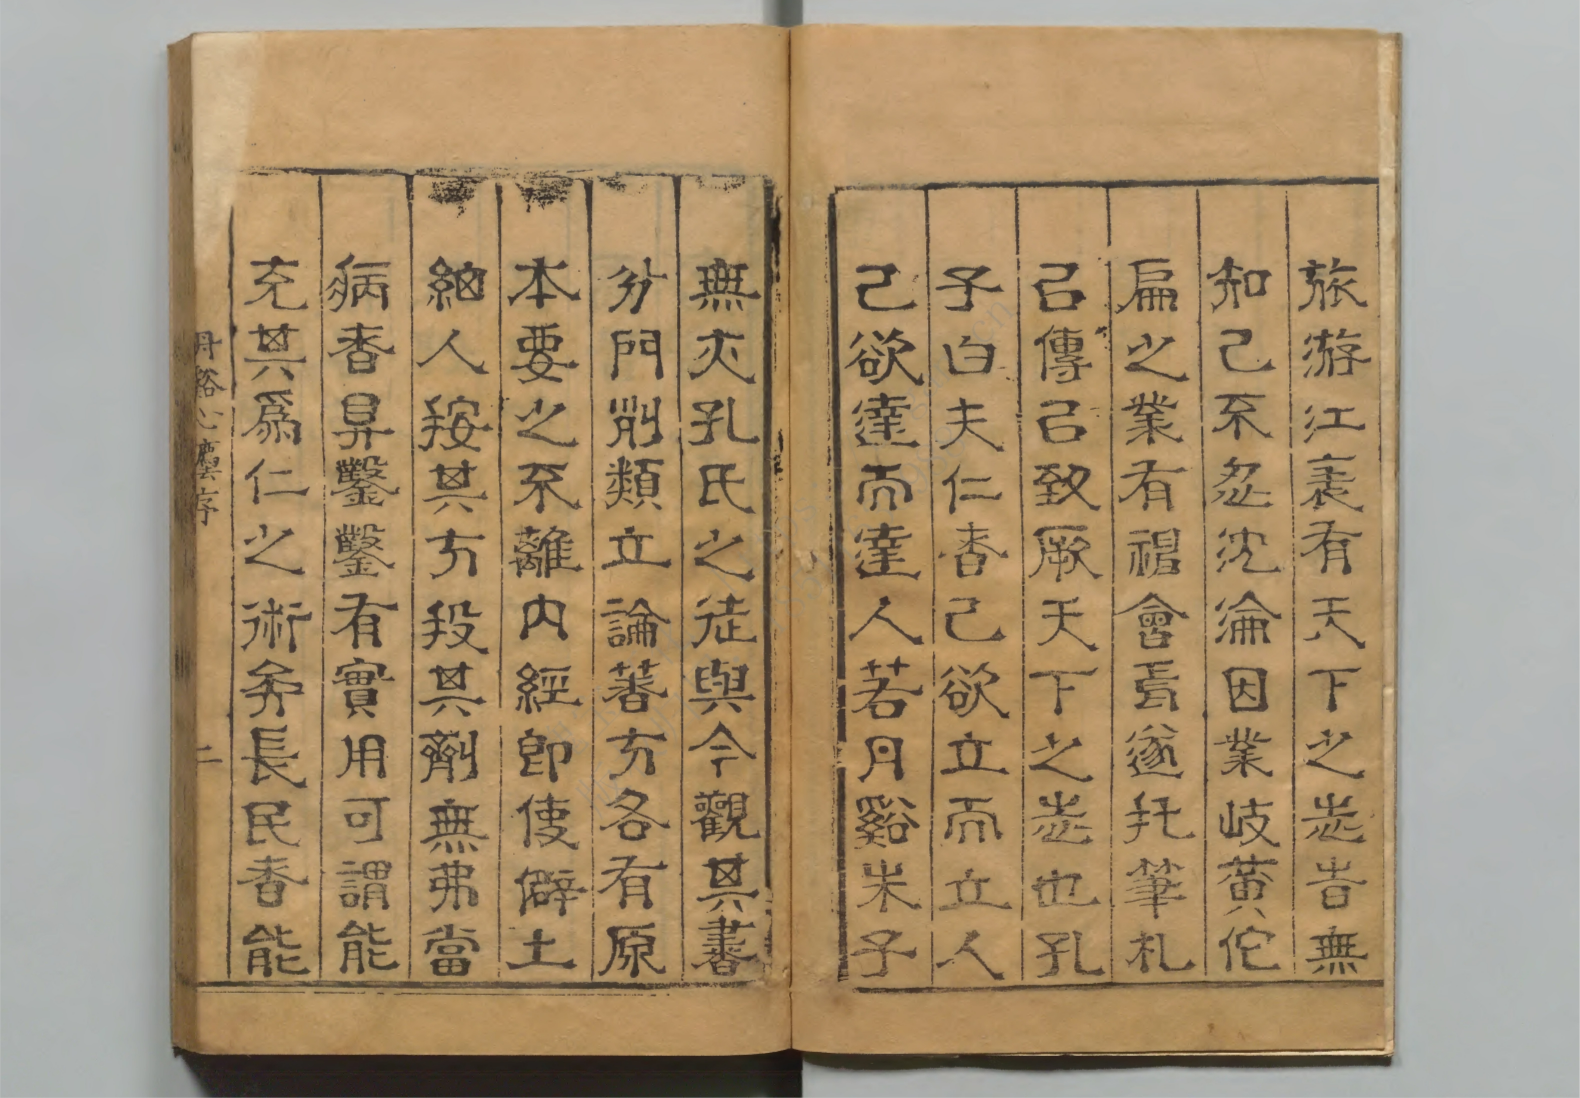 旅游江表有天下之志者無
知己不忍沈淪因業岐黃佗
扁之業有禔會焉遂托筆札
㠯傳㠯致厥天下之志也孔
子曰夫仁者己欲立而立人
己欲達而達人若丹谿朱子
無亦孔氏之徒與今觀其書
分門別類立論著方各有原
本要之不離內經即使僻土
細人按其方投其劑無弗當
病者昇鑿鑿有實用可謂能
充其為仁之術矣長民者能
丹谿心 序
二